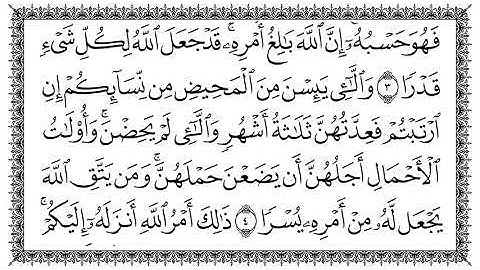 فَهُوَ حَسْبُهُۥٓ ۚ إِنَّ ٱللَّهَ بَٰلِغُ أَمْرِهِۦ ۚ قَدْ جَعَلَ ٱللَّهُ لِكُلِّ شَىْءٍ
قَدْرًا ٣ وَٱلَّٰٓـِٔى يَئِسْنَ مِنَ ٱلْمَحِيضِ مِن نِّسَآئِكُمْ إِنِ
ٱرْتَبْتُمْ فَعِدَّتُهُنَّ ثَلَٰثَةُ أَشْهُرٍ وَٱلَّٰٓـِٔى لَمْ يَحِضْنَ ۚ وَأُو۟لَٰتُ
ٱلْأَحْمَالِ أَجَلُهُنَّ أَن يَضَعْنَ حَمْلَهُنَّ ۚ وَمَن يَتَّقِ ٱللَّهَ
يَجْعَل لَّهُۥ مِنْ أَمْرِهِۦ يُسْرًا ٤ ذَٰلِكَ أَمْرُ ٱللَّهِ أَنزَلَهُۥٓ إِلَيْكُمْ ۚ